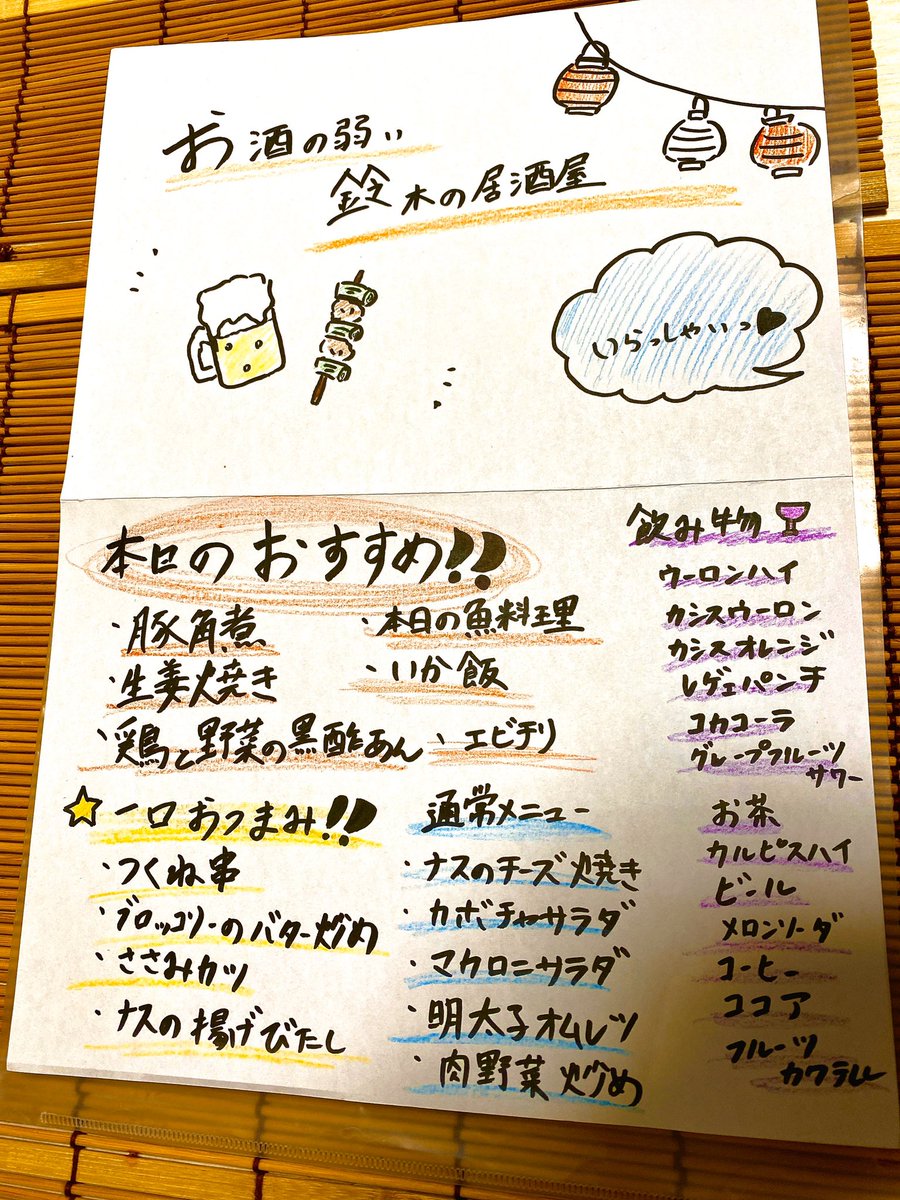 お酒の弱い
鈴木の居酒屋
いらっしゃいっ♥
本日のおすすめ!!
・豚角煮
・生姜焼き
・鶏と野菜の黒酢あん
・本日の魚料理
・いか飯
・エビチリ
☆一口おつまみ!!
・つくね串
・ブロッコリーのバター炒め
・ささみカツ
・ナスの揚げびたし
通常メニュー
・ナスのチーズ焼き
・カボチャサラダ
・マカロニサラダ
・明太子オムレツ
・肉野菜炒め
飲み物
ウーロンハイ
カシスウーロン
カシスオレンジ
レゲェパンチ
コカコーラ
グレープフルーツ
サワー
お茶
カルピスハイ
ビール
メロンソーダ
コーヒー
ココア
フルーツ
カクテル